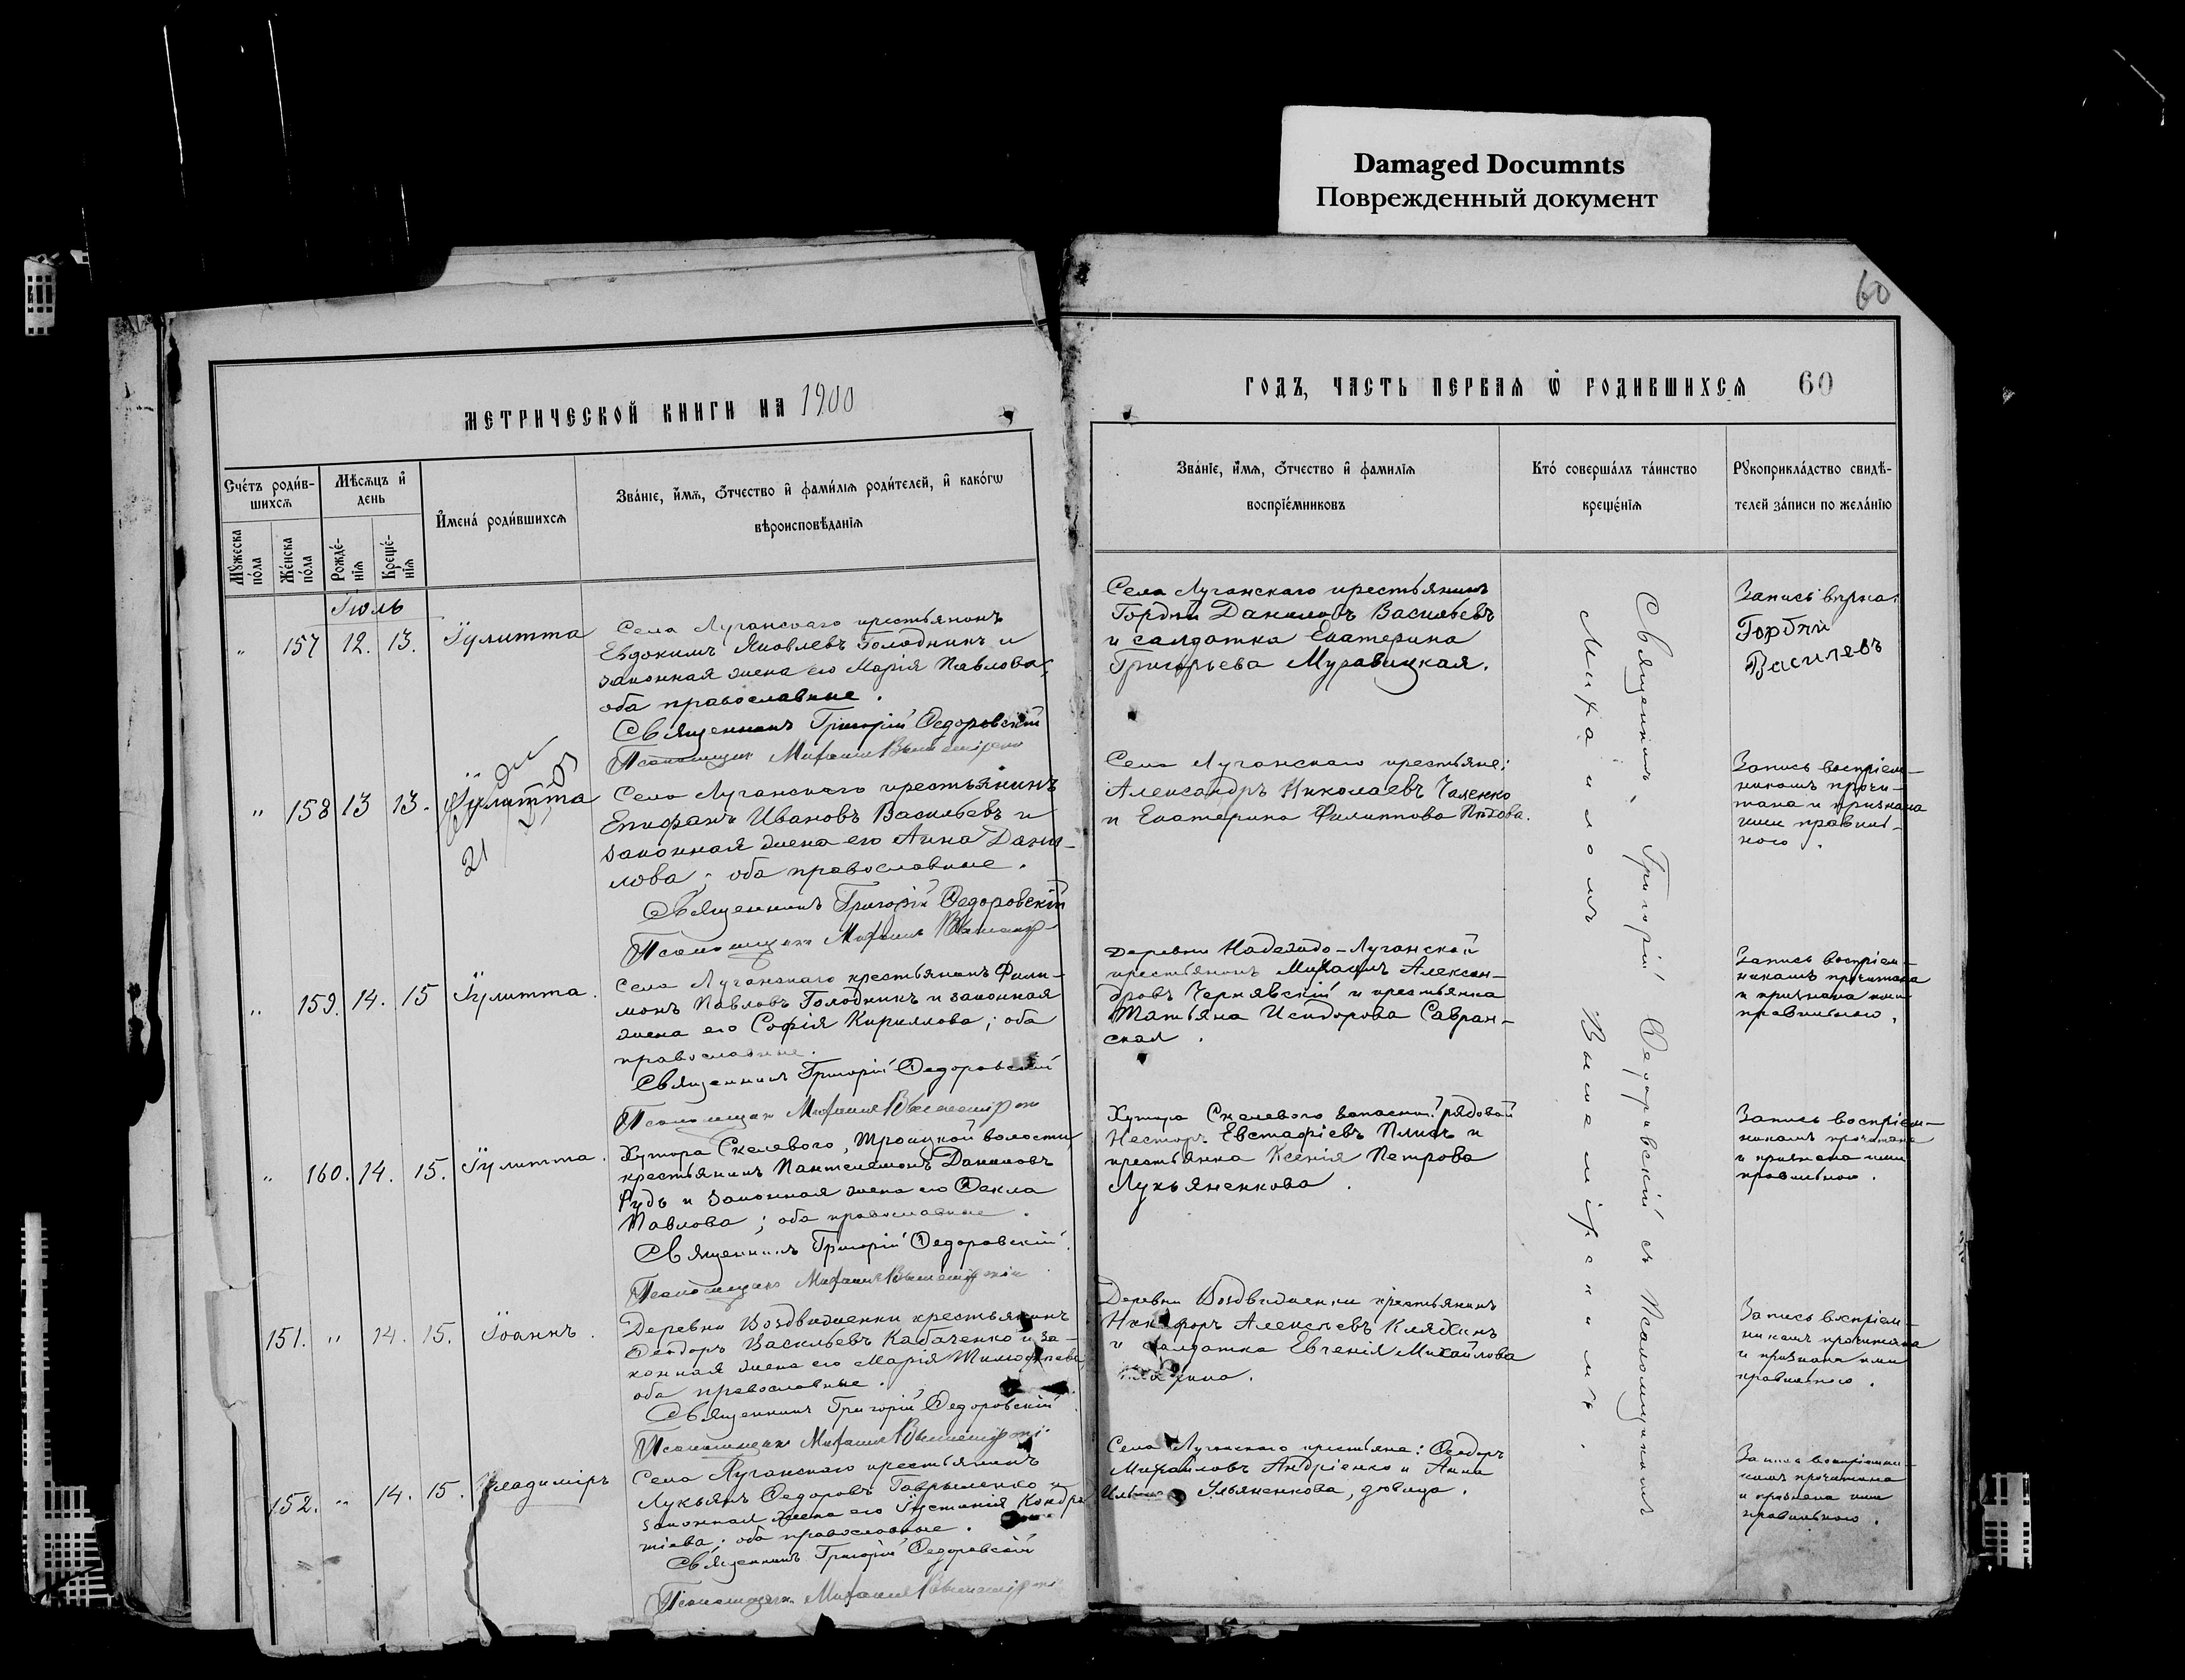 Damaged Documnts
Поврежденный документ
60
МЕТРИЧЕСКОЙ КНИГИ НА 1900
ГОДЪ, ЧАСТЬ ПЕРВАЯ Ѡ РОДИВШИХСЯ 60
Счетъ родив-
шихся
Мужеска
пола
Женска
пола
Мѣсяцъ и
день
Рожде-
нія
Креще-
нія
Имена родившихся
Званіе, имя, отчество и фамилія родителей, и какогѡ
вѣроисповѣданія
Званіе, имя, отчество и фамилія
воспріемниковъ
Кто совершалъ таинство
крещенія
Рукоприкладство свидѣ-
телей записи по желанію
Іюль
" 157 12. 13. Іулитта
Села Луганскаго крестьянинъ
Евдокимъ Яковлевъ Голодникъ и
законная жена его Марія Павлова;
оба православные.
Священникъ Григорій Ѳедоровскій
Псаломщикъ Михаилъ
Села Луганскаго крестьянинъ
Гордѣй Даниловъ Васильевъ
и солдатка Екатерина
Григорьева Муравицкая.
Запись вѣрна:
Гордѣй
Василевъ
" 158 13 13. Іулитта
21
Села Луганскаго крестьянинъ
Епифанъ Ивановъ Васильевъ и
законная жена его Анна Дани-
лова; оба православные.
Священникъ Григорій Ѳедоровскій
Псаломщикъ Михаилъ
Села Луганскаго крестьяне:
Александръ Николаевъ Чаленко
и Екатерина Филиппова
Запись воспріем-
никамъ прочи-
тана и признана
ими правиль-
ною.
" 159. 14. 15 Іулитта.
Села Луганскаго крестьянинъ Фили-
монъ Павловъ Голодникъ и законная
жена его Софія Кириллова; оба
православные.
Священникъ Григорій Ѳедоровскій
Псаломщикъ Михаилъ
Деревни Надеждо-Луганской
крестьянинъ Михаилъ Алексан-
дровъ Чернявскій и крестьянка
Татьяна Исидорова Савран-
ская.
Запись воспріем-
никамъ прочитана
и признана ими
правильною.
" 160. 14. 15. Іулитта.
Хутора Скелевого, Троицкой волости,
крестьянинъ Пантелеимонъ Даниловъ
Рудь и законная жена его Ѳекла
Павлова; оба православные.
Священникъ Григорій Ѳедоровскій.
Псаломщикъ Михаилъ
Хутора Скелевого запасной рядовой
Несторъ Евстафіевъ и
крестьянка Ксенія Петрова
Лукьяненкова.
Запись воспріем-
никамъ прочитана
и признана ими
правильною.
151. " 14. 15. Іоаннъ.
Деревни Воздвиженки крестьянинъ
Ѳеодоръ Васильевъ Кабаченко и за-
конная жена его Марія Тимофеева
оба православные.
Священникъ Григорій Ѳедоровскій
Псаломщикъ Михаилъ
Деревни Воздвиженки крестьянинъ
Никифоръ Алексѣевъ
и солдатка Евгенія Михайлова
Запись воспріем-
никамъ прочитана
и признана ими
правильною.
152. " 14. 15. Владиміръ
Села Луганскаго крестьянинъ
Лукьянъ Ѳедоровъ Гавриленко и
законная жена его Іустинія Кондра-
тіева; оба православные.
Священникъ Григорій Ѳедоровскій
Псаломщикъ Михаилъ
Села Луганскаго крестьяне: Ѳеодоръ
Михайловъ Андріенко и Анна
Ульяненкова, дѣвица.
Запись воспріемни-
камъ прочитана
и признана ими
правильною.
Священникъ Григорій Ѳедоровскій съ Псаломщикомъ
Михаиломъ